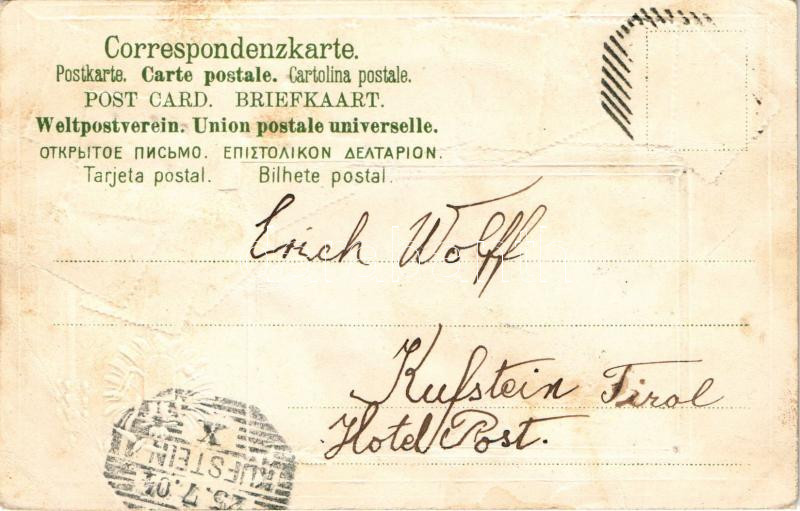 Correspondenzkarte.
Postkarte. Carte postale. Cartolina postale.
POST CARD. BRIEFKAART.
Weltpostverein. Union postale universelle.
ОТКРЫТОЕ ПИСЬМО. ΕΠΙΣΤΟΛΙΚΟΝ ΔΕΛΤΑΡΙΟΝ.
Tarjeta postal. Bilhete postal.
Erich Wolff
Kufstein Tirol
Hotel Post.
X
KUFSTEIN